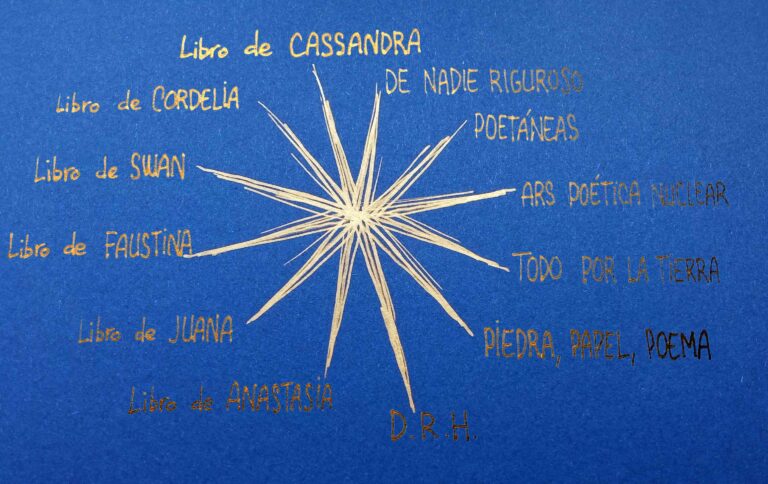 Libro de CASSANDRA
DE NADIE RIGUROSO
Libro de CORDELIA
POETÁNEAS
Libro de SWAN
ARS POÉTICA NUCLEAR
Libro de FAUSTINA
TODO POR LA TIERRA
Libro de JUANA
PIEDRA, PAPEL, POEMA
Libro de ANASTASIA
D.R.H.